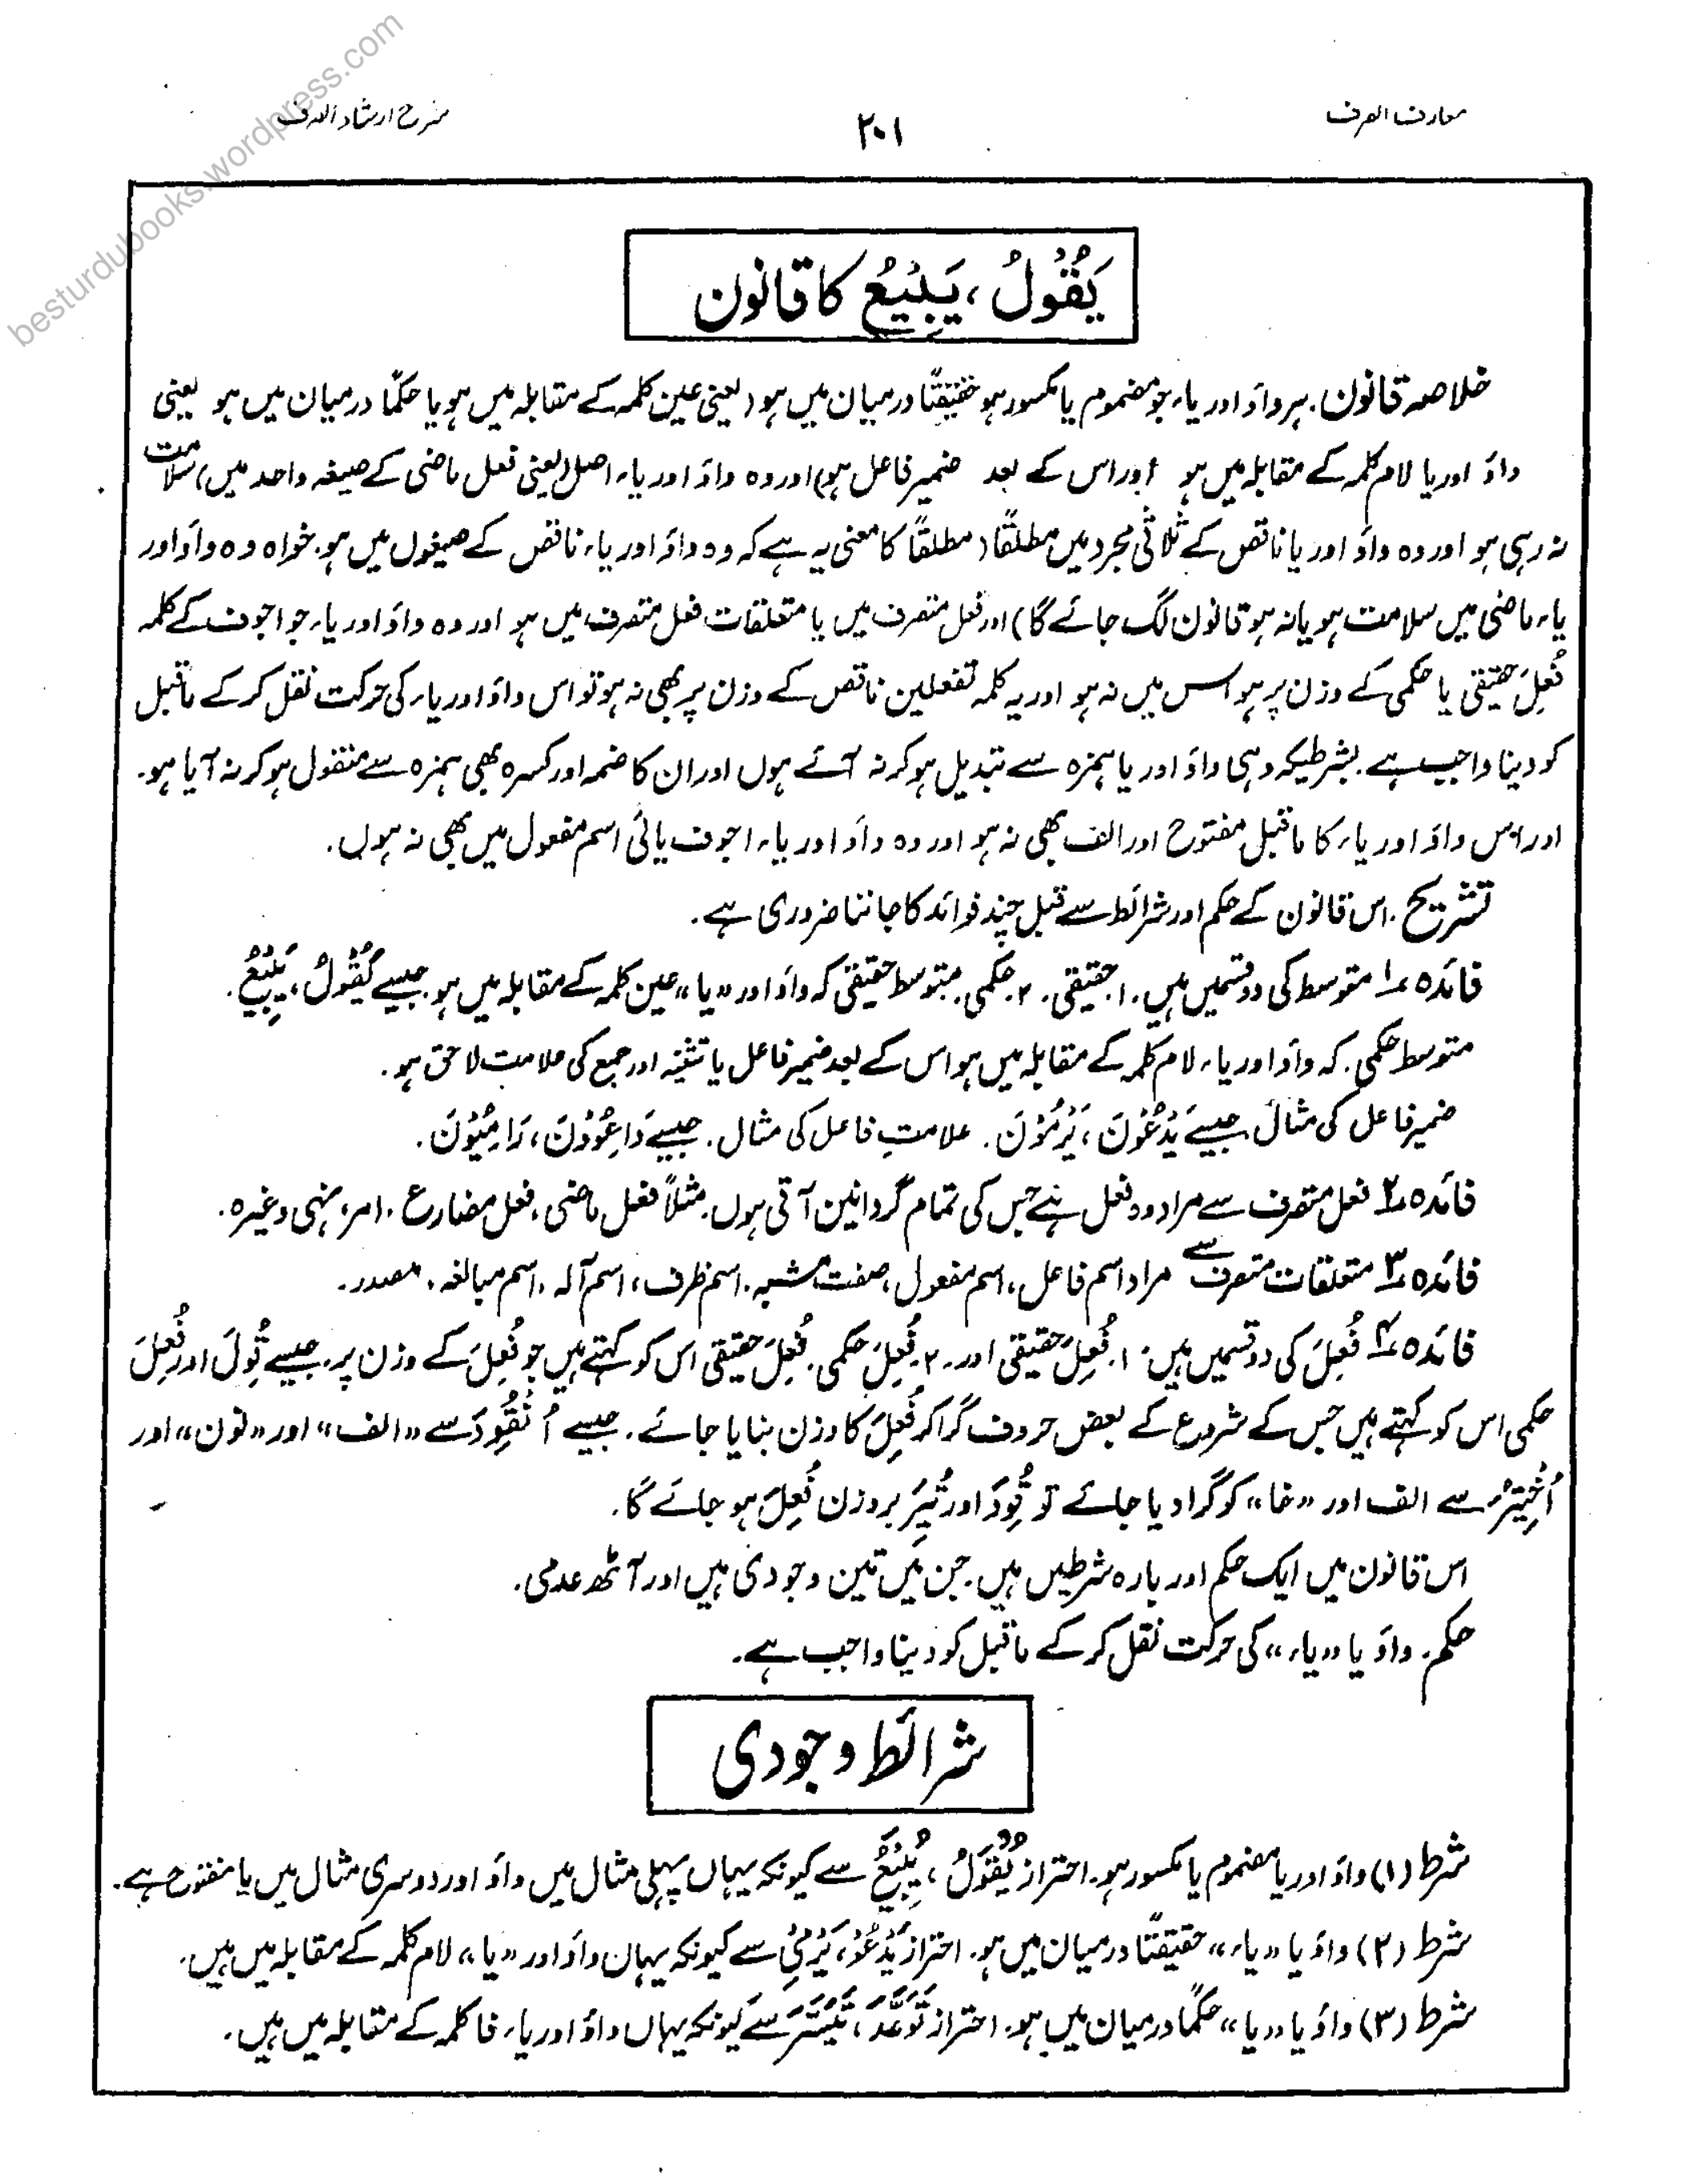 besturdubooks.wordpress.com
معارف الصرف
۲۰۱
شرح ارشاد الصرف
يَقْوُلُ، يَبْيِعُ کا قانون
خلاصہ قانون۔ ہر واؤ اور یاء جو مضموم یا مکسور ہو حقیقتًا درمیان میں ہو (یعنی عین کلمہ کے مقابلہ میں ہو یا حکمًا درمیان میں ہو یعنی
واؤ اور یا لام کلمہ کے مقابلہ میں ہو اور اس کے بعد ضمیر فاعل ہو) اور وہ واؤ اور یاء اصل (یعنی فعل ماضی کے صیغہ واحد میں) سلامت
نہ رہی ہو اور وہ واؤ اور یا ناقص کے ثلاثی مجرد میں مطلقًا (مطلقًا کا معنی یہ ہے کہ وہ واؤ اور یاء ناقص کے صیغوں میں ہو۔ خواہ وہ واؤ اور
یاء ماضی میں سلامت ہو یا نہ ہو قانون لگ جائے گا) اور فعل متصرف میں یا متعلقات فعل متصرف میں ہو اور وہ واؤ اور یاء جو اجوف کے کلمہ
فُعِلَ حقیقی یا حکمی کے وزن پر ہو اس میں نہ ہو اور یہ کلمہ تفعلین ناقص کے وزن پر بھی نہ ہو تو اس واؤ اور یاء کی حرکت نقل کر کے ماقبل
کو دینا واجب ہے۔ بشرطیکہ وہی واؤ اور یا ہمزہ سے تبدیل ہو کر نہ آئے ہوں اور ان کا ضمہ اور کسرہ بھی ہمزہ سے منقول ہو کر نہ آیا ہو۔
اور اس واؤ اور یاء کا ماقبل مفتوح اور الف بھی نہ ہو اور وہ واؤ اور یاء اجوف یائی اسم مفعول میں بھی نہ ہوں۔
تشریح۔ اس قانون کے حکم اور شرائط سے قبل چند فوائد کا جاننا ضروری ہے۔
فائدہ ۱ متوسط کی دو قسمیں ہیں۔ ۱۔ حقیقی۔ ۲۔ حکمی۔ متوسط حقیقی کہ واؤ اور "یا" عین کلمہ کے مقابلہ میں ہو۔ جیسے يَقْوُلُ، يَبْيِعُ۔
متوسط حکمی۔ کہ واؤ اور یاء لام کلمہ کے مقابلہ میں ہو اس کے بعد ضمیر فاعل یا تثنیہ اور جمع کی علامت لاحق ہو۔
ضمیر فاعل کی مثال جیسے يَدْعُوْنَ، يَرْمُوْنَ۔ علامتِ فاعل کی مثال۔ جیسے دَاعِوُوْنَ، رَامِيُوْنَ۔
فائدہ ۲ فعل متصرف سے مراد وہ فعل ہے جس کی تمام گردانیں آتی ہوں۔ مثلاً فعل ماضی، فعل مضارع، امر، نہی وغیرہ۔
فائدہ ۳ متعلقات متصرف سے مراد اسم فاعل، اسم مفعول، صفت مشبہ، اسم ظرف، اسم آلہ، اسم مبالغہ، مصدر۔
فائدہ ۴ فُعِلَ کی دو قسمیں ہیں۔ ۱۔ فُعِلَ حقیقی اور۔ ۲۔ فُعِلَ حکمی۔ فُعِلَ حقیقی اس کو کہتے ہیں جو فُعِلَ کے وزن پر۔ جیسے قُوِلَ اور فُعِلَ
حکمی اس کو کہتے ہیں جس کے شروع کے بعض حروف گرا کر فُعِلَ کا وزن بنایا جائے۔ جیسے اُنْقُوِدَ سے "الف" اور "نون" اور
اُخْتُيِرَ سے الف اور "خا" کو گرا دیا جائے تو قُوِدَ اور تُيِرَ بروزن فُعِلَ ہو جائے گا۔
اس قانون میں ایک حکم اور بارہ شرطیں ہیں۔ جن میں تین وجودی ہیں اور آٹھ عدمی۔
حکم۔ واؤ یا "یاء" کی حرکت نقل کر کے ماقبل کو دینا واجب ہے۔
شرائط وجودی
شرط (۱) واؤ اور یا مضموم یا مکسور ہو۔ احتراز يُقْوَلُ، يُبْيَعُ سے کیونکہ یہاں پہلی مثال میں واؤ اور دوسری مثال میں یا مفتوح ہے۔
شرط (۲) واؤ یا "یاء" حقیقتًا درمیان میں ہو۔ احتراز يَدْعُوُ، يَرْمِيُ سے کیونکہ یہاں واؤ اور "یا" لام کلمہ کے مقابلہ میں ہیں۔
شرط (۳) واؤ یا "یا" حکمًا درمیان میں ہو۔ احتراز تَوَعَّدَ، تَيَسَّرَ سے کیونکہ یہاں واؤ اور یاء فا کلمہ کے مقابلہ میں ہیں۔